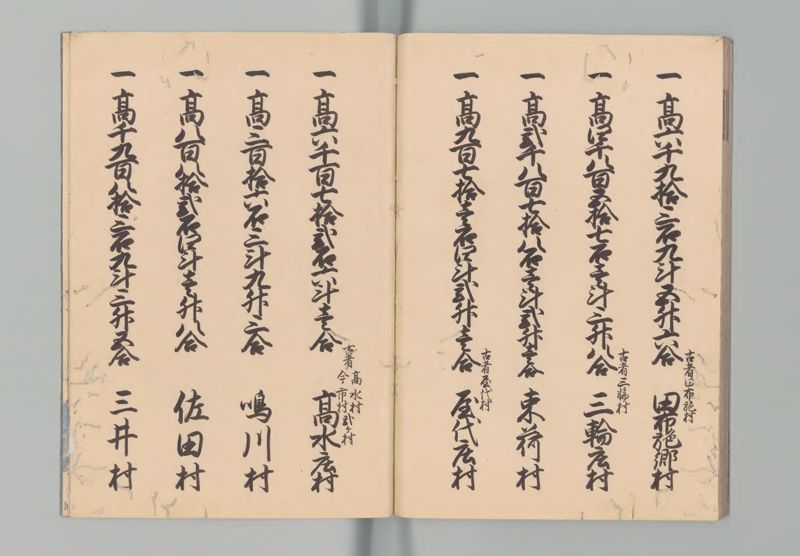 一 高六千九拾三石九斗五升六合 古者田布施村 田布施郷村
一 高四千八百五拾七石壱斗三升八合 古者三輪村 三輪庄村
一 高弐千八百七拾八石壱斗弐升壱合 束荷村
一 高九百七拾壱石四斗弐升壱合 古者屋代村 屋代庄村
一 高六千百七拾弐石六斗壱合 古者高水村 今市村弐ケ村 高水庄村
一 高三百拾六石三斗九升三合 鳴川村
一 高八百八拾弐石四斗壱升八合 佐田村
一 高千九百八拾三石九斗三升五合 三井村